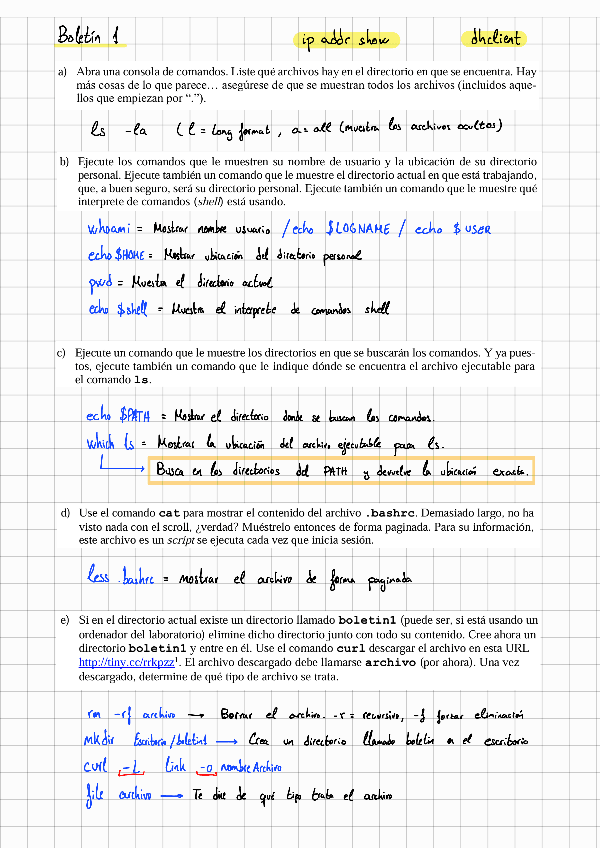 Boletín 1 ip addr show dhclient
a) Abra una consola de comandos. Liste qué archivos hay en el directorio en que se encuentra. Hay
más cosas de lo que parece… asegúrese de que se muestran todos los archivos (incluidos aque-
llos que empiezan por “.”).
ls -la ( l = long format , a = all (muestra los archivos ocultos)
b) Ejecute los comandos que le muestren su nombre de usuario y la ubicación de su directorio
personal. Ejecute también un comando que le muestre el directorio actual en que está trabajando,
que, a buen seguro, será su directorio personal. Ejecute también un comando que le muestre qué
interprete de comandos (shell) está usando.
whoami = Mostrar nombre usuario / echo $LOGNAME / echo $USER
echo $HOME = Mostrar ubicación del directorio personal
pwd = Muestra el directorio actual
echo $shell = Muestra el interprete de comandos shell
c) Ejecute un comando que le muestre los directorios en que se buscarán los comandos. Y ya pues-
tos, ejecute también un comando que le indique dónde se encuentra el archivo ejecutable para
el comando ls.
echo $PATH = Mostrar el directorio donde se buscan los comandos.
which ls = Mostrar la ubicación del archivo ejecutable para ls.
Busca en los directorios del PATH y devuelve la ubicación exacta.
d) Use el comando cat para mostrar el contenido del archivo .bashrc. Demasiado largo, no ha
visto nada con el scroll, ¿verdad? Muéstrelo entonces de forma paginada. Para su información,
este archivo es un script se ejecuta cada vez que inicia sesión.
less .bashrc = mostrar el archivo de forma paginada
e) Si en el directorio actual existe un directorio llamado boletin1 (puede ser, si está usando un
ordenador del laboratorio) elimine dicho directorio junto con todo su contenido. Cree ahora un
directorio boletin1 y entre en él. Use el comando curl descargar el archivo en esta URL
http://tiny.cc/rrkpzz¹. El archivo descargado debe llamarse archivo (por ahora). Una vez
descargado, determine de qué tipo de archivo se trata.
rm -rf archivo → Borrar el archivo. -r = recursivo, -f forzar eliminación
mkdir Escritorio/boletin1 → Crea un directorio llamado boletin en el escritorio
curl -L link -o nombreArchivo
file archivo → Te dice de qué tipo trata el archivo